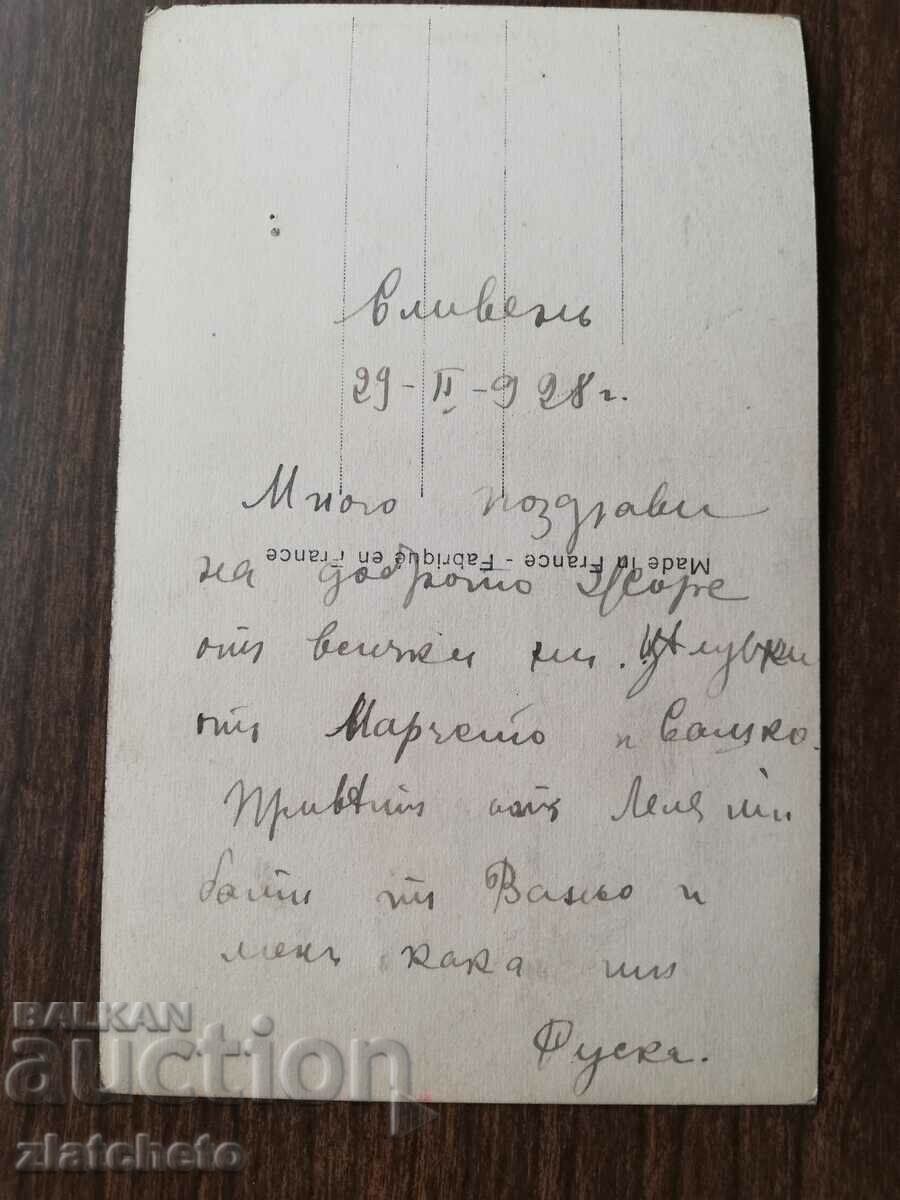 Сливенъ
29-II-928 г.
Много поздрави
на доброто Жоре
отъ всички ни. Цѣлувки
отъ Марчето и
Привѣтъ отъ Леля ти
бати ти Ваньо и
менъ кака ти
Made in France - Fabriqué en France
BALKAN
auction
zlatcheto